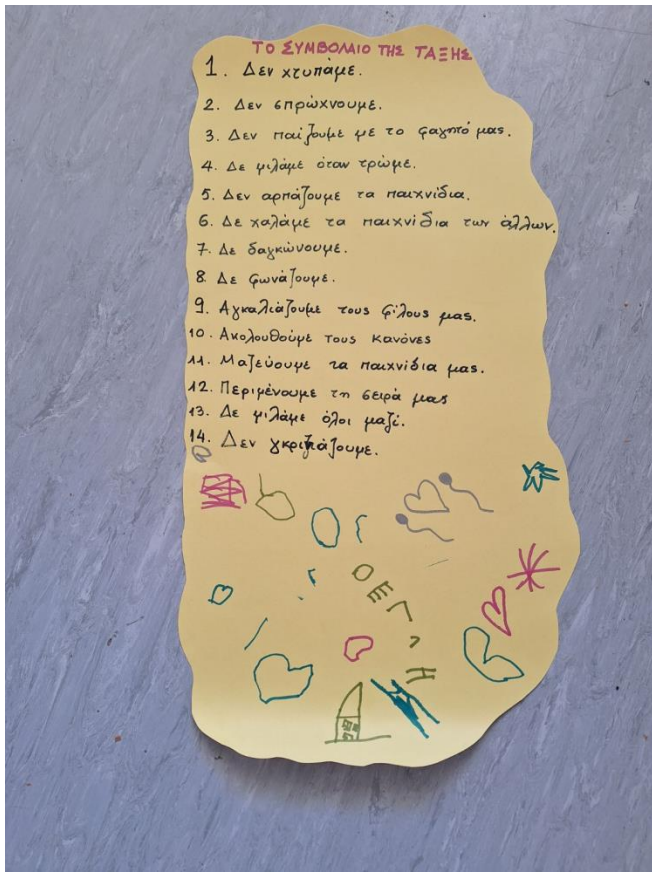 ΤΟ ΣΥΜΒΟΛΑΙΟ ΤΗΣ ΤΑΞΗΣ
1. Δεν χτυπάμε.
2. Δεν σπρώχνουμε.
3. Δεν παίζουμε με το φαγητό μας.
4. Δε μιλάμε όταν τρώμε.
5. Δεν αρπάζουμε τα παιχνίδια.
6. Δε χαλάμε τα παιχνίδια των άλλων.
7. Δε δαγκώνουμε.
8. Δε φωνάζουμε.
9. Αγκαλιάζουμε τους φίλους μας.
10. Ακολουθούμε τους κανόνες
11. Μαζεύουμε τα παιχνίδια μας.
12. Περιμένουμε τη σειρά μας
13. Δε μιλάμε όλοι μαζί.
14. Δεν γκρινιάζουμε.